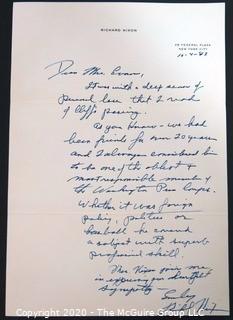 RICHARD NIXON
26 FEDERAL PLAZA
NEW YORK CITY
10-4-83
Dear Mrs. Evans,
It was with a deep sense of
personal loss that I read
of Cliff's passing.
As you know - we had
been friends for over 30 years
and I always considered him
to be one of the ablest &
most responsible members of
the Washington Press Corps.
Whether it was foreign
policy, politics or
baseball he covered
a subject with superb
professional skill.
Mrs. Nixon joins me
in expressing our heartfelt
sympathy -
Sincerely
Copyright 2020 - The McGuire Group LLC